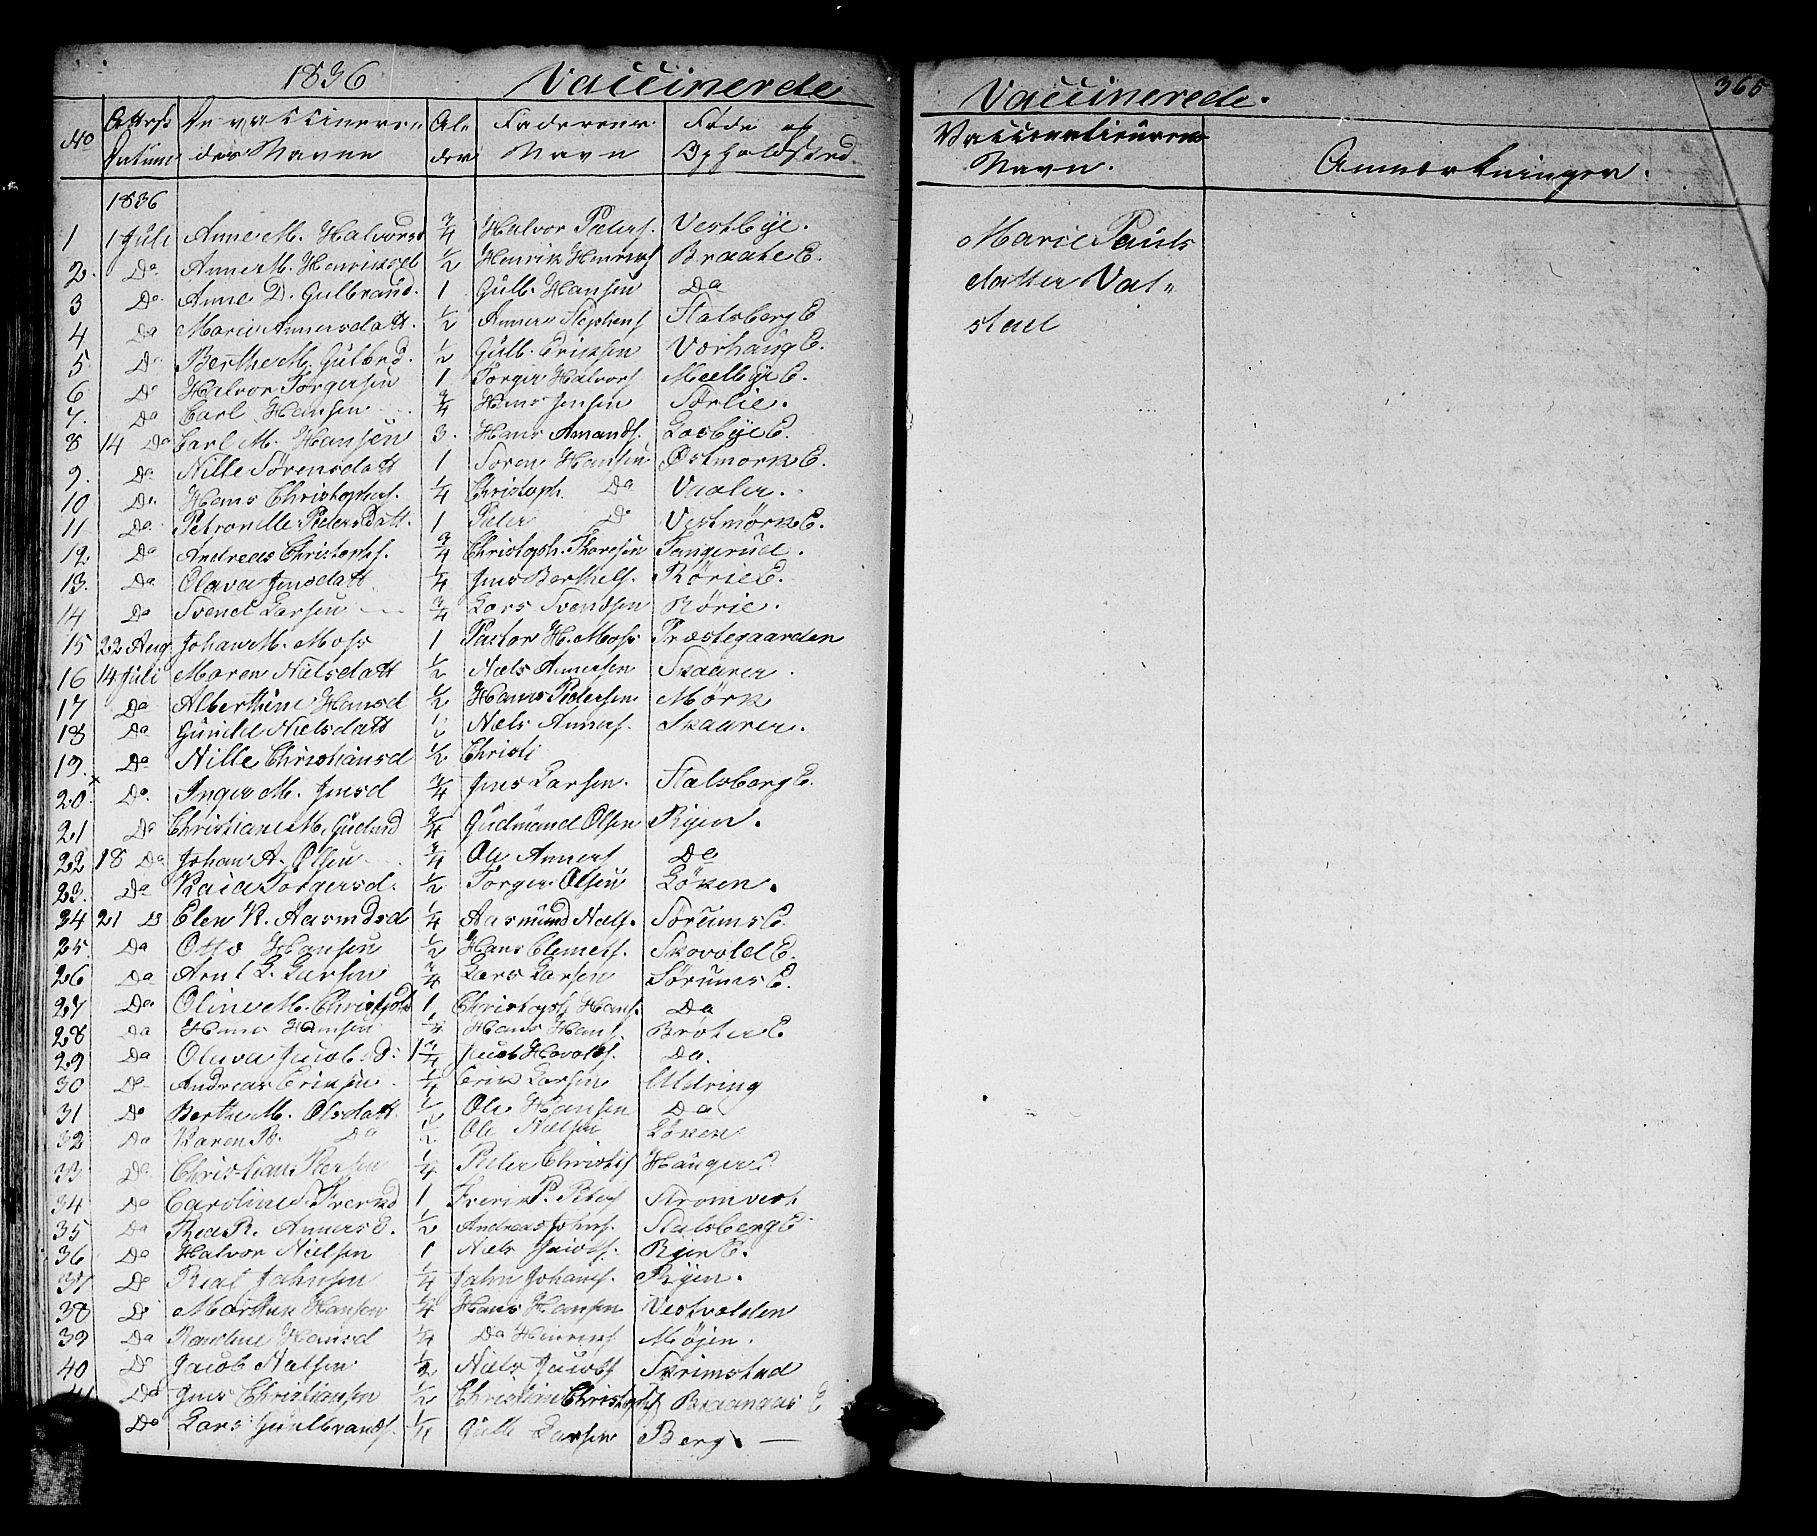 1836 Vaccinerede
No Attests Datum De vaccinere- des Navne Al- der Faderens Navn Føde og Opholdsted
1836
1 1 Juli Anne M. Halvorsd 3/4 Halvor Peders. Vestbye.
2. Do Anne M. Henriksd 1/2 Henrik Henriks Braate E.
3 Do Anne D. Gulbrand. 1 Gulb. Hansen Do
4 Do Marie Annersdatt. 1/2 Anners Stephens Stalsberg E
5. Do Berthe M. Gulbrd. 1/2 Gulb. Eriksen Værhaug E.
6 Do Halvor Torgersen 1 Torger Halvors Melbye E.
7. Do Carl Hansen 3/4 Hans Jensen Sørlie.
8 14 Do Carl M. Hansen 3. Hans Amunds. Losbye E.
9. Do Nille Sørensdatt 1 Søren Hansen Østmork E.
10 Do Hans Christophers. 1/4 Christoph. Do Vaaler.
11 Do Petronelle Pedersdatt. 1 Peder Do Vestmørk E.
12. Do Andreas Christophs. 3/4 Christoph. Thoresen Tangerud.
13. Do Olava Jensdatt 1/4 Jens Berthels. Rørie E.
14 Do Svend Larsen 3/4 Lars Svendsen Rørie.
15 22 Aug Johan M. Moss 1 Pastor H. Moss Præstegaarden
16 14 Juli Maren Nielsdatt 1/2 Niels Annersen Skaarer
17 Do Alberthine Hansd 1/2 Hans Pedersen Mørk
18 Do Gunild Nielsdatt 1/2 Niels Anners. Skaarer.
19. Do Nille Christiansd 1/2 Christi
20. Do Inger M. Jensd 3/4 Jens Larsen. Stalsberg E.
21 Do Christiane M. Gudmd 3/4 Gudmund Olsen Ryen.
22 18 Do Johan A. Olsen 3/4 Ole Anners Do
23. Do Kaia Torgersd. 1/2 Torger Olsen Løken.
34 21 D Elen K. Aasmdsd 1/4 Aasmund Niels. Sørums E.
25. Do Otto Hansen 1/2 Hans Clemets. Skovold E.
26 Do Arnt L. Larsen 3/4 Lars Larsen Sørums E.
27 Do Oline M. Christophd 1 Christoph Hans. Do
28 Do Hans Hansen 1/4 Hans Hans Brøter E
29 Do Olava Jacobsd. 1 3/4 Jacob Do.
30 Do Andreas Eriksen 1/4 Erik Larsen Aldring
31 Do Berthe M. Olsdatt 1/2 Ole Hansen Do
32 Do Karen B. Do 1/2 Ole Nielsen Løken
33 Do Christian Pedersen 1/4 Peder Christis Hauger E
34 Do Caroline S. 1 P. Peders Strømvest.
35 Do Anners D. 1/2 Andreas Johns. Stalsberg E
36 Do Halvor Nielsen 1 Niels Jacobs. Ryen E.
37 Do Jahnsen 1/4 Jahn Johans. Ryen.
38 Do Marthin Hansen 1/4 Hans Hansen Vestvolden
39 Do Karoline Hansd 1/4 Do Henriks Møien.
40 Do Jacob Nielsen 1/2 Niels Jacobs Skrimstad
41 Do Jens Christiansen 1/2 Christian Christophs Braanaas E
Do Lars Gulbrands. 1/4 Gulb Larsen Berg. —
Vaccinerede. 365
Vaccinatieurens Navn. Anmærkninger.
Marie Pauls
datter Val-
stad